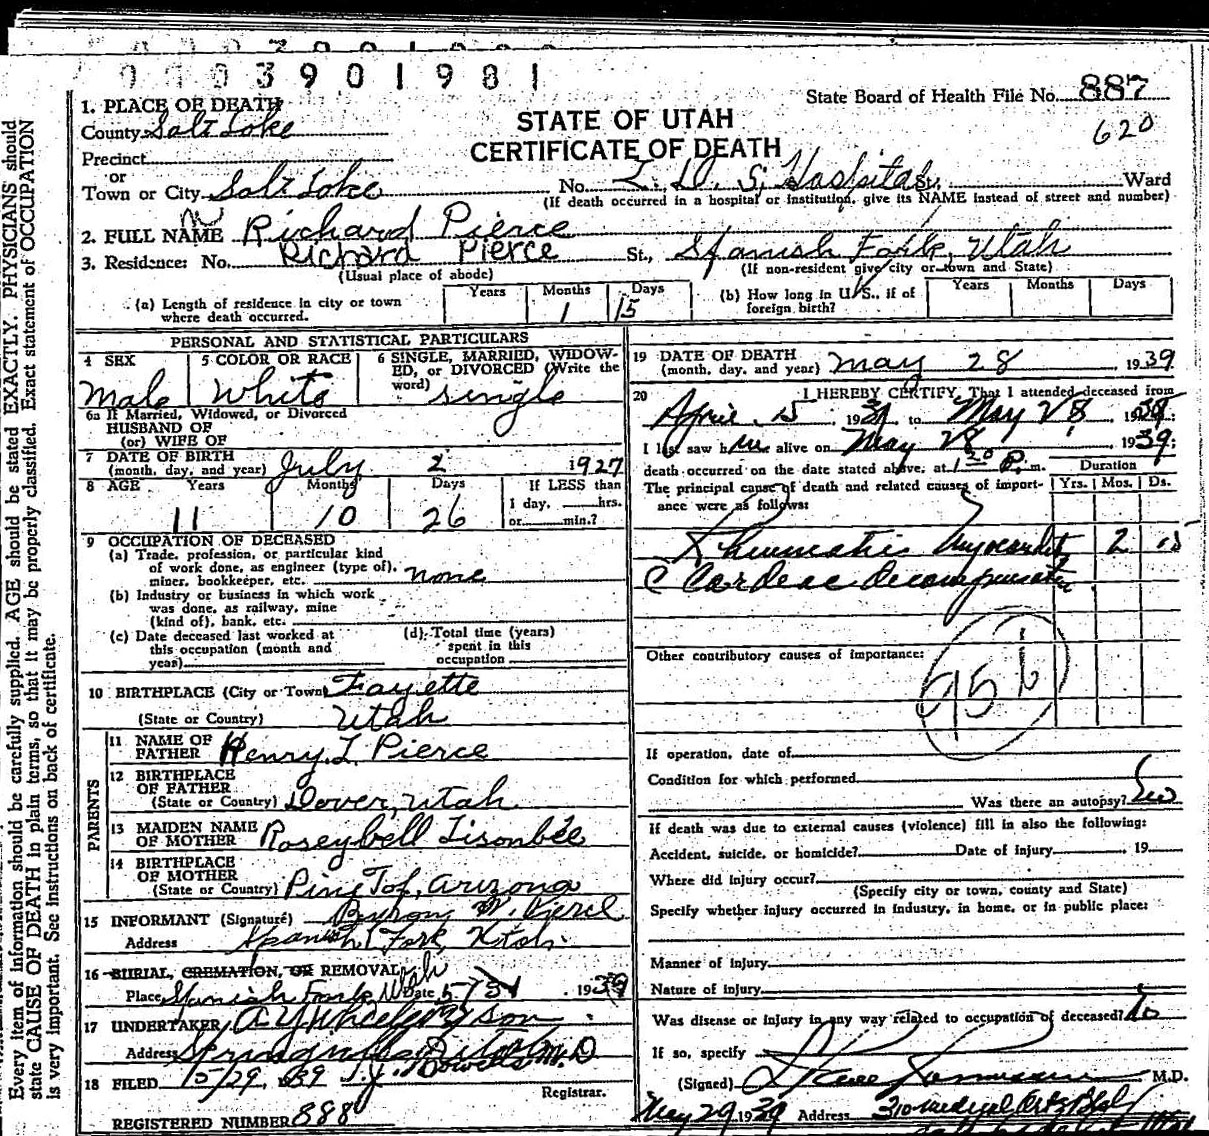 0003901981
State Board of Health File No. 887
620
STATE OF UTAH
CERTIFICATE OF DEATH
1. PLACE OF DEATH
County Salt Lake
Precinct
or
Town or City Salt Lake No. L. D. S. Hospital St., Ward
(If death occurred in a hospital or institution, give its NAME instead of street and number)
2. FULL NAME Richard Pierce
3. Residence: No. Richard Pierce St., Spanish Fork, Utah
(Usual place of abode) (If non-resident give city or town and State)
(a) Length of residence in city or town where death occurred. Years Months 1 Days 15
(b) How long in U. S., if of foreign birth? Years Months Days
PERSONAL AND STATISTICAL PARTICULARS
4 SEX Male
5 COLOR OR RACE White
6 SINGLE, MARRIED, WIDOWED, or DIVORCED (Write the word) Single
6a If Married, Widowed, or Divorced
HUSBAND OF
(or) WIFE OF
7 DATE OF BIRTH
(month, day, and year) July 2 1927
8 AGE Years 11 Months 10 Days 26 If LESS than 1 day, hrs. or min.?
9 OCCUPATION OF DECEASED
(a) Trade, profession, or particular kind
of work done, as engineer (type of),
miner, bookkeeper, etc. none
(b) Industry or business in which work
was done, as railway, mine
(kind of), bank, etc.
(c) Date deceased last worked at
this occupation (month and
year)
(d) Total time (years)
spent in this
occupation
10 BIRTHPLACE (City or Town) Fayette
(State or Country) Utah
PARENTS
11 NAME OF
FATHER Henry L Pierce
12 BIRTHPLACE
OF FATHER
(State or Country) Dover, Utah
13 MAIDEN NAME
OF MOTHER Roseybell Tisonbee
14 BIRTHPLACE
OF MOTHER
(State or Country) Pine Top, Arizona
15 INFORMANT (Signature) Byron W. Pierce
Address Spanish Fork, Utah.
16 BURIAL, CREMATION, OR REMOVAL
Place Spanish Fork, Utah Date 5/31 1939
17 UNDERTAKER
Address Springville
18 FILED 5/29, 1939 M.D
Registrar.
REGISTERED NUMBER 888
19 DATE OF DEATH
(month, day, and year) May 28 1939
20 I HEREBY CERTIFY, That I attended deceased from
April 15 1939, to May 28, 1939.
I last saw him alive on May 28 1939;
death occurred on the date stated above, at 1 20 P. m.
The principal cause of death and related causes of importance were as follows:
Duration
Yrs. Mos. Ds.
Rheumatic Myocarditis 2 15
C Cardiac Decompensation
Other contributory causes of importance:
If operation, date of
Condition for which performed
Was there an autopsy?
If death was due to external causes (violence) fill in also the following:
Accident, suicide, or homicide? Date of injury 19
Where did injury occur?
(Specify city or town, county and State)
Specify whether injury occurred in industry, in home, or in public place:
Manner of injury
Nature of injury
Was disease or injury in any way related to occupation of deceased? No
If so, specify
(Signed) M.D.
May 29 1939 Address 310 Medical Arts Bldg
Every item of information should be carefully supplied. AGE should be stated EXACTLY. PHYSICIANS should
state CAUSE OF DEATH in plain terms, so that it may be properly classified. Exact statement of OCCUPATION
is very important. See instructions on back of certificate.